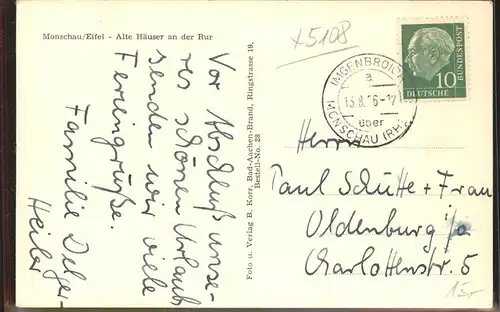 Monschau/Eifel - Alte Häuser an der Rur
Vor Abschluß unse-
res schönen Urlaubs
senden wir viele
Feriengrüße.
Familie Delger-
Heiler
Foto u. Verlag B. Korr, Bad-Aachen-Brand, Ringstrasse 19,
Bestell-No. 23
x5108
IMGENBROICH
a
13.8.
über
MONSCHAU (RH
10
DEUTSCHE
BUNDESPOST
Herrn
Paul Schütte + Frau
Oldenburg i/o
Charlottenstr. 5